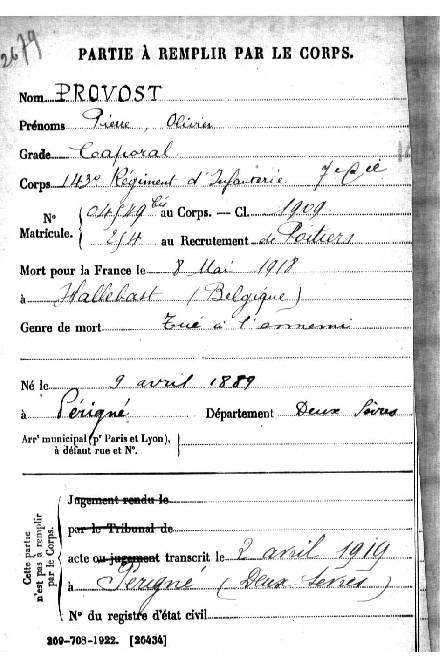 2679
PARTIE À REMPLIR PAR LE CORPS.
Nom PROVOST
Prénoms Pierre, Olivier
Grade Caporal
Corps 143e Régiment d'Infanterie 7e Cie
N° Matricule. 04549 bis au Corps. — Cl. 1909
254 au Recrutement de Poitiers
Mort pour la France le 8 Mai 1918
à Hallebast (Belgique)
Genre de mort Tué à l'ennemi
Né le 9 avril 1889
à Périgné Département Deux Sèvres
Arrt municipal (pr Paris et Lyon),
à défaut rue et N°.
Cette partie
n'est pas à remplir
par le Corps.
Jugement rendu le
par le Tribunal de
acte ou jugement transcrit le 2 avril 1919
à Périgné (Deux Sèvres)
N° du registre d'état civil
269-708-1922. [26434]